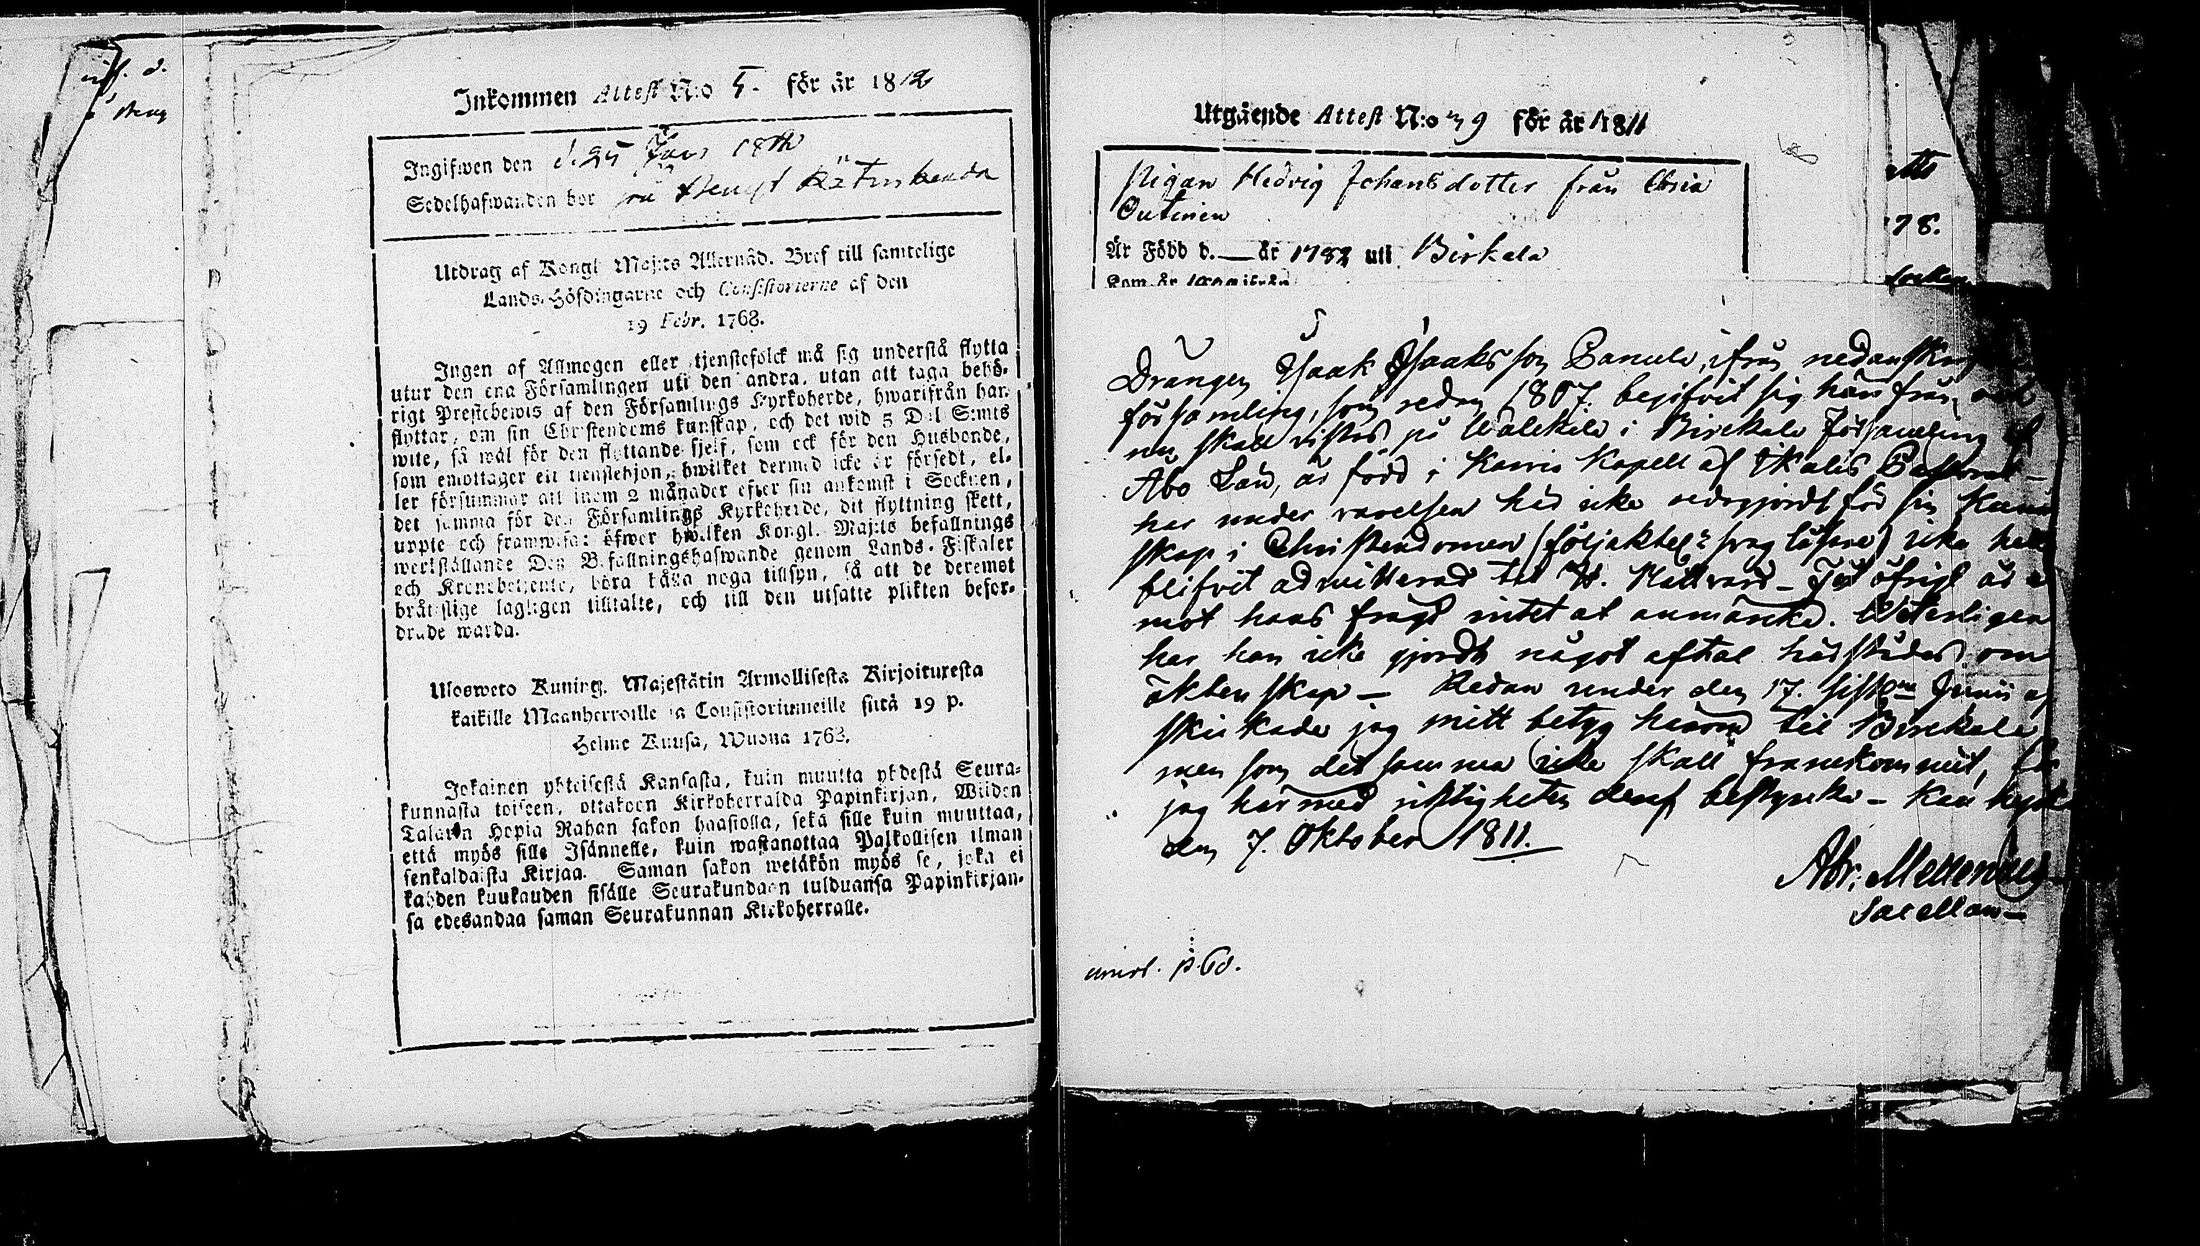 Inkommen Attest N:o 5. för år 1812
Ingifwen den d. 25 Janu 1812
Sedelhafwanden bor
Utdrag af Kongl. Maj:ts Allernåd. Bref till samtelige
Lands-Höfdingarne och Consistorierne af den
19 Febr. 1768.
Ingen af Allmogen eller tjenstefolck må sig understå flytta
utur den ena Församlingen uti den andra, utan att taga behö-
rigt Prestebewis af den Församlings Kyrkoherde, hwarifrån han
flyttar, om sin Christendoms kunskap, och det wid 5 Dal. S:mts
wite, så wäl för den flyttande sjelf, som ock för den Husbonde,
som emottager ett tienstehjon, hwilket dermed icke är försedt, el-
ler försummar att inom 2 månader efter sin ankomst i Socknen,
det samma för den Församlings Kyrkoherde, dit flyttning skett,
uppte och framwisa: öfwer hwilken Kongl. Maj:ts befallnings
werkställande Dess Befallningshafwande genom Lands-Fiskaler
och Kronobetjente, böra hålla noga tillsyn, så att de deremot
bråtslige lagligen tilltalte, och till den utsatte plikten befor-
drade warda.
Ulosweto Kuning. Majestätin Armollisesta Kirjoituxesta
kaikille Maanherroille ja Consistoriumeille siitä 19 p.
Helme Kuusa, Wuona 1768.
Jokainen yhteisestä Kansasta, kuin muutta yhdestä Seura-
kunnasta toiseen, ottakoon Kirkoherralda Papinkirjan, Wiiden
Talarin Hopia Rahan sakon haastolla, sekä sille kuin muuttaa,
että myös sille Isännelle, kuin wastanottaa Palkollisen ilman
senkaldaista Kirjaa. Saman sakon wetäkön myös se, joka ei
kahden kuukauden sisälle Seurakundaan tulduansa Papinkirjan-
sa edesandaa saman Seurakunnan Kirkoherralle.
Utgående Attest N:o 39 för år 1811
Pigan Hedvig Johansdotter från
Outinen
Är Född d. — år 1782 uti Birkala
Kom år
5
Drängen Isaak Isaaksson ifrån
församling, som redan 1807. begifvit sig härifrån och
nu skall vistas på Walckila i Birckala Församling af
Åbo Län, är född i Kapell af Ikalis Pastorat –
har under varelsen här icke redogjordt för sin Kun
skap i Christendomen (följaktel: icke
blifvit admitterad till H. Nattvard – I öfrigt är
mot hans frägd intet at anmärka. Veterligen
har han icke gjordt något aftal härstädes om
äktenskap – Redan under den 17. sistne Junii
skickade jag mitt betyg härom till Birckala
men som det samma icke skall framkommit,
jag härmed riktigheten deraf bestyrka –
den 7. Oktober 1811.
Abr:
Sacellan
p. 60.
178.